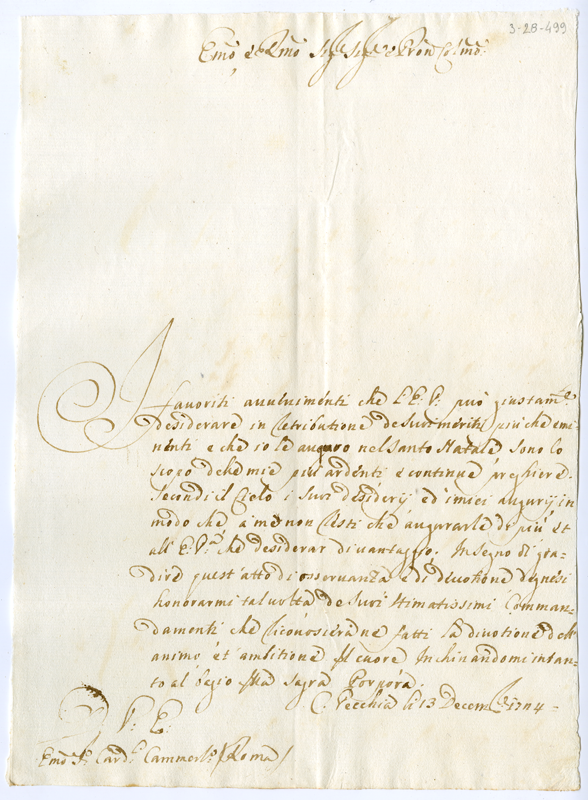 3-28-499
Emo e Rmo Sigr Sigr e Pron Colmo
I favoriti avvenimenti che l'E. V. può giustamte
desiderare in retributione de suoi meriti più che emi
nenti e che io le auguro nel Santo Natale sono lo
scopo delle mie più ardenti e continue preghiere.
Secondi il Cielo i suoi desiderij ed i miei augurij in
modo che a me non resti che augurarle di più et
all' E. Va che desiderar di vantaggio. In segno di gra-
dire quest' atto di osservanza e di divotione degnesi
honorarmi tal volta de suoi stimatissimi Comman-
damenti che riconoscerà ne fatti la divotione dell'
animo et ambitione del cuore. Inchinandomi intan-
to al bagio della sagra Porpora.
C. Vecchia li 13 Decembre 1704-
D. V. E.
Emo Sr Cardl Cammerlo (Roma)